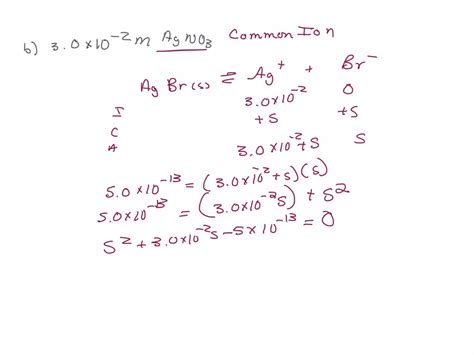 b) 3.0×10⁻² m AgNO₃ Common Ion
AgBr(s) ⇌ Ag⁺ + Br⁻
I 3.0×10⁻² 0
C +S +S
A 3.0×10⁻²+S S
5.0×10⁻¹³ = (3.0×10⁻²+s)(s)
5.0×10⁻¹³ = (3.0×10⁻²s) + s²
s² + 3.0×10⁻²s − 5×10⁻¹³ = 0